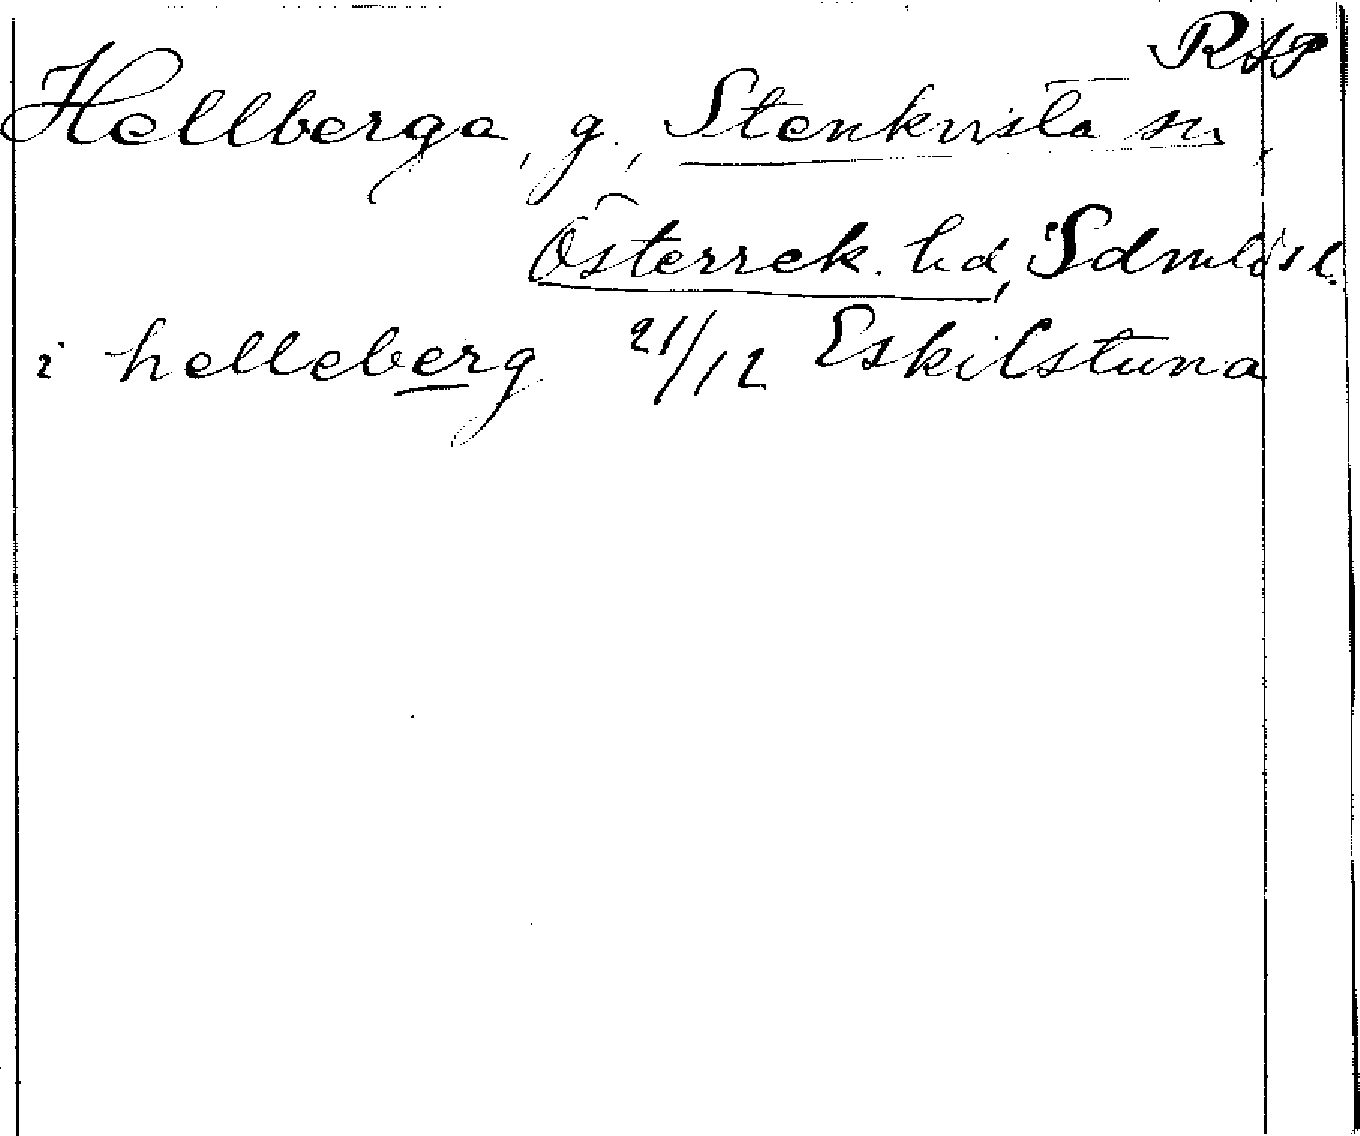 RAP
Hellberga, g., Stenkvista sn,
Österrek. hd, Sdml.
i helleberg 21/12 Eskilstuna